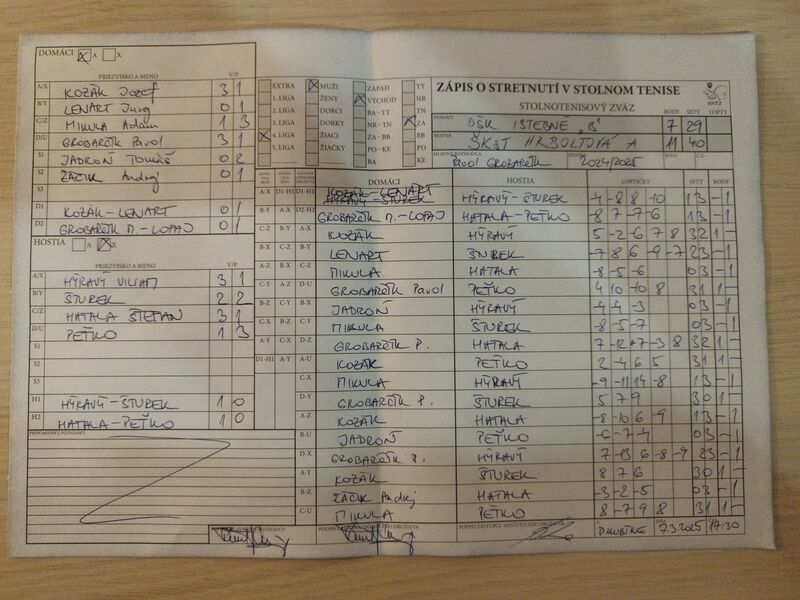 DOMÁCI A X
PRIEZVISKO A MENO V/P
A/X KOZÁK Jozef 3 1
B/Y LENÁRT Juraj 0 1
C/Z MIKULA Adam 1 3
D/U GROBARČÍK Pavol 3 1
S1 JADROŇ Tomáš 0 2
S2 ŽÁČIK Andrej 0 1
S3
D1 KOZÁK-LENÁRT 0 1
D2 GROBARČÍK M.-LOPAJ 0 1
HOSTIA A X
PRIEZVISKO A MENO V/P
A/X HÝRAVÝ VILIAM 3 1
B/Y ŠTUREK 2 2
C/Z HATALA ŠTEFAN 3 1
D/U PEŤKO 1 3
S1
S2
S3
H1 HÝRAVÝ-ŠTUREK 1 0
H2 HATALA-PEŤKO 1 0
PRIPOMIENKY, POZNÁMKY
EXTRA MUŽI ZÁPAD TT
1. LIGA ŽENY VÝCHOD NR
2. LIGA DORCI BA-TT TN
3. LIGA DORKY NR-TN ZA
4. LIGA ŽIACI ZA-BB BB
5. LIGA ŽIAČKY PO-KE PO
BA KE
ZÁPIS O STRETNUTÍ V STOLNOM TENISE
STOLNOTENISOVÝ ZVÄZ
SSTZ
DOMÁCI BODY SETY LOPTY
OŠK ISTEBNÉ "B" 7 29
HOSTIA
ŠKST HRBOLTOVÁ A 11 40
HLAVNÝ ROZHODCA
Pavol GROBARČÍK 2024/2025
DOMÁCI HOSTIA LOPTIČKY SETY BODY
A-X D1-H1 D1-H1 KOZÁK-LENÁRT HÝRAVÝ-ŠTUREK -4 -8 8 -10 1 3 - 1
B-Y A-X D2-H2 GROBARČÍK M.-LOPAJ HATALA-PEŤKO -8 7 -7 -6 1 3 - 1
C-Z B-Y A-X KOZÁK HÝRAVÝ 5 -2 -6 7 8 3 2 1 -
B-X C-Z B-Y LENÁRT ŠTUREK -7 8 6 -9 -7 2 3 - 1
A-Z B-X C-Z MIKULA HATALA -8 -5 -6 0 3 - 1
C-Y A-Z D-U GROBARČÍK Pavol PEŤKO 4 10 -10 8 3 1 1 -
B-Z C-Y B-X JADROŇ HÝRAVÝ -4 -4 -3 0 3 - 1
C-X B-Z C-Y MIKULA ŠTUREK -8 -5 -7 0 3 - 1
A-Y C-X D-Z GROBARČÍK P. HATALA 7 -12 7 -3 8 3 2 1 -
D1-H1 A-Y A-U KOZÁK PEŤKO 2 -4 6 5 3 1 1 -
C-X MIKULA HÝRAVÝ -9 -11 14 -8 1 3 - 1
D-Y GROBARČÍK P. ŠTUREK 5 7 9 3 0 1 -
A-Z KOZÁK HATALA -8 -10 6 -9 1 3 - 1
B-U JADROŇ PEŤKO -6 -7 -4 0 3 - 1
D-X GROBARČÍK P. HÝRAVÝ 7 -13 6 -8 -9 2 3 - 1
A-Y KOZÁK ŠTUREK 8 7 6 3 0 1 -
B-Z ŽÁČIK Andrej HATALA -3 -2 -5 0 3 - 1
C-U MIKULA PEŤKO 8 -7 9 8 3 1 1 -
PODPIS ZÁSTUPCU HOSŤUJÚCEHO DRUŽSTVA
7.3.2025 17:30